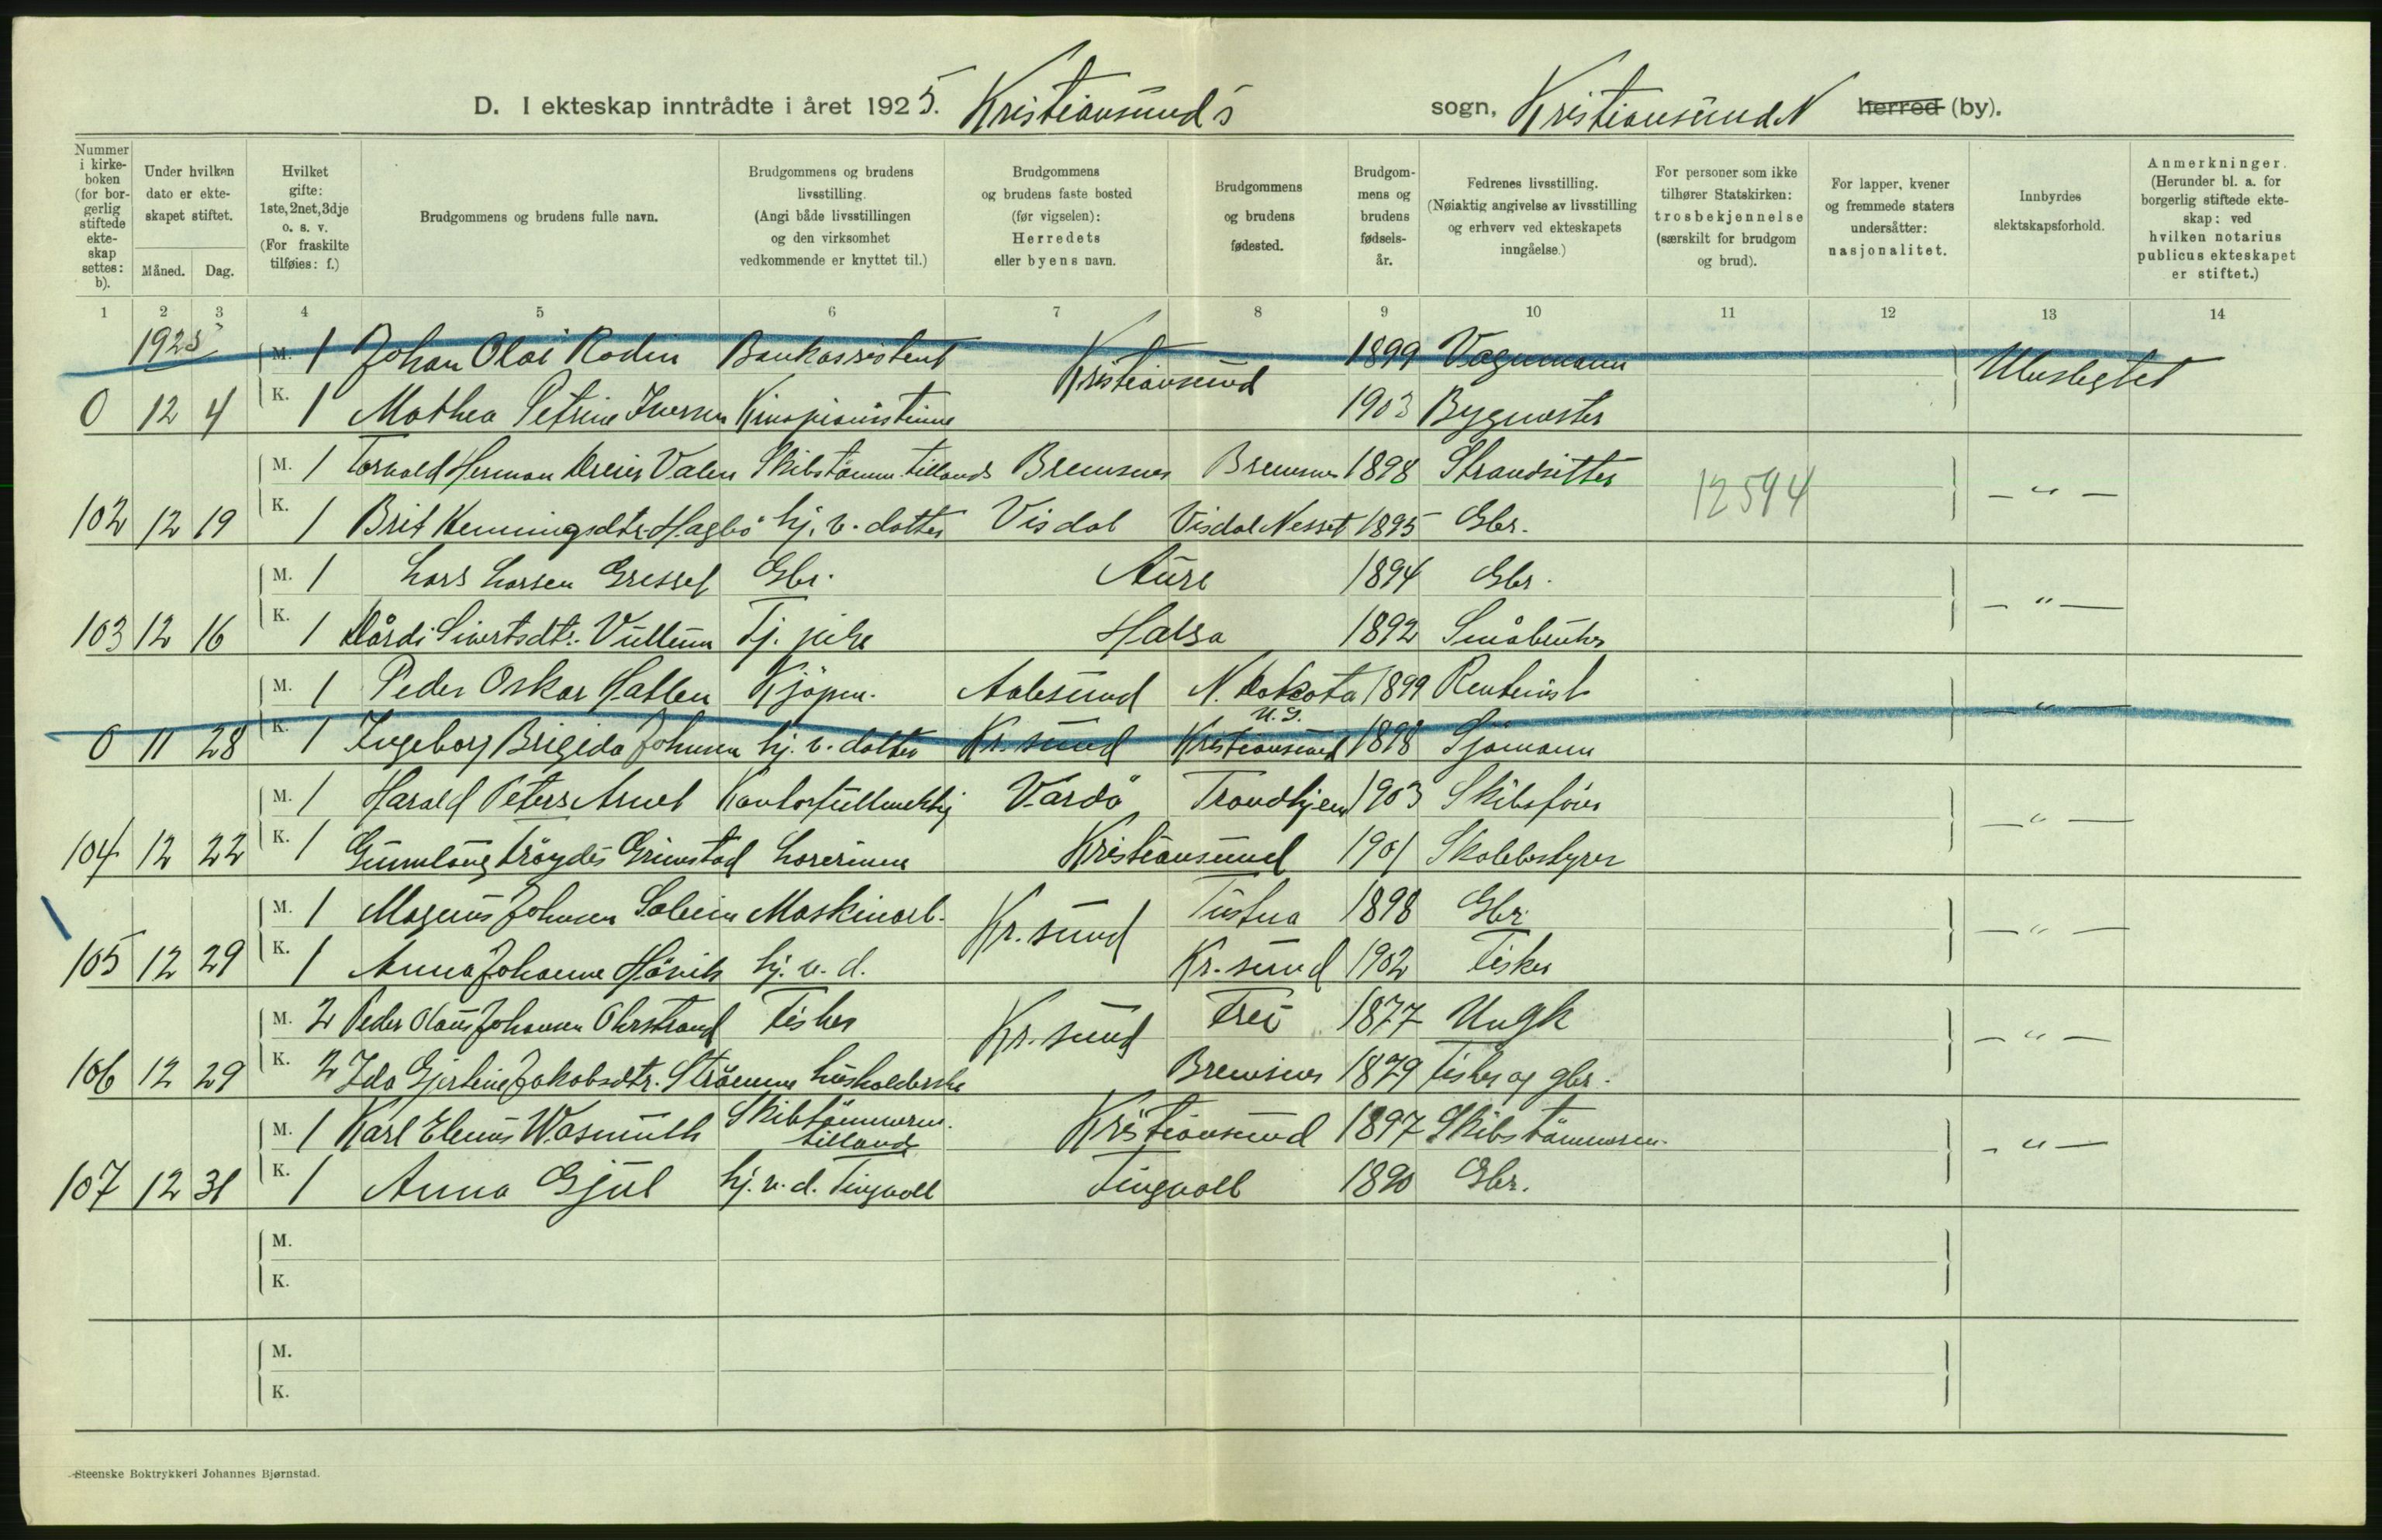 D. I ekteskap inntrådte i året 1925. Kristiansund's sogn, Kristiansund N herred (by).
Nummer i kirkeboken (for borgerlig stiftede ekteskap settes: b).
Under hvilken dato er ekteskapet stiftet.
Måned. Dag.
Hvilket gifte: 1ste, 2net, 3dje o. s. v. (For fraskilte tilføies: f.)
Brudgommens og brudens fulle navn.
Brudgommens og brudens livsstilling. (Angi både livsstillingen og den virksomhet vedkommende er knyttet til.)
Brudgommens og brudens faste bosted (før vigselen): Herredets eller byens navn.
Brudgommens og brudens fødested.
Brudgommens og brudens fødselsår.
Fedrenes livsstilling. (Nøiaktig angivelse av livsstilling og erhverv ved ekteskapets inngåelse.)
For personer som ikke tilhører Statskirken: trosbekjennelse (særskilt for brudgom og brud).
For lapper, kvener og fremmede staters undersåtter: nasjonalitet.
Innbyrdes slektskapsforhold.
Anmerkninger. (Herunder bl. a. for borgerlig stiftede ekteskap: ved hvilken notarius publicus ekteskapet er stiftet.)
1 2 3 4 5 6 7 8 9 10 11 12 13 14
1925 M. 1 Johan Olai Rodin Bankassistent Kristiansund 1899 Vognmann Ubeslegtet
0 12 4 K. 1 Mathea Petrine Iversen Kinopianistinne 1903 Bygmester
M. 1 Torvald Herman Dreier Valen Skibstømm. tillands Bremsnes Bremsnes 1898 Strandsitter 12594 — " —
102 12 19 K. 1 Brit Henningsdtr. Hagbø hj. v. datter Visdal Visdal Nesset 1895 Gbr.
M. 1 Lars Larsen Gresset Gbr. Aure 1894 Gbr. — " —
103 12 16 K. 1 Mårdi Sivertsdtr. Vullum Tj. pike Halsa 1892 Småbruker
M. 1 Peder Oskar Hatlen Kjøpm. Aalesund N. Dakota U.S. 1899 Rentenist — " —
0 11 28 K. 1 Ingeborg Brigida Johnsen hj. v. datter Kr. sund Kristiansund 1898 Sjømann
M. 1 Harald Peters Arnet Kontorfullmektig Vardö Trondhjem 1903 Skibsfører — " —
104 12 22 K. 1 Gunnlaug Frøydis Grimstad Lærerinne Kristiansund 1901 Skolebestyrer
M. 1 Magnus Johnsen Soleim Maskinarb. Kr. sund Tustna 1898 Gbr. — " —
105 12 29 K. 1 Anna Johanne Håvik hj. v. d. Kr. sund 1902 Fisker
M. 2 Peder Olaus Johansen Ohrstrand Fisker Kr. sund Frei 1877 Ungk — " —
106 12 29 K. 2 Ida Gjertine Jakobsdtr. Strømme husholderske Bremsnes 1879 Fisker og gbr.
M. 1 Karl Elenus Wasmuth Skibtømmerm. tillands Kristiansund 1897 Skibstømmerm. — " —
107 12 31 K. 1 Anna Gjül hj. v. d. Tingvoll Tingvoll 1890 Gbr.
M.
K.
M.
K.
Steenske Boktrykkeri Johannes Bjørnstad.